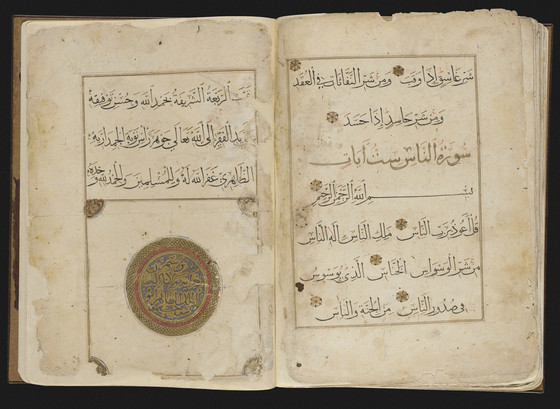 شر غاسق اذا وقب ومن شر النفاثات في العقد
ومن شر حاسد اذا حسد
سورة الناس ست ايات
بسم الله الرحمن الرحيم
قل اعوذ برب الناس ملك الناس اله الناس
من شر الوسواس الخناس الذي يوسوس
في صدور الناس من الجنة والناس
الربعة الشريفة بحمد الله وحسن توفيقه
الفقير الى الله تعالى جوهر راس نوبة الجمدارية
الظاهري غفر الله له وللمسلمين والحمد لله وحده